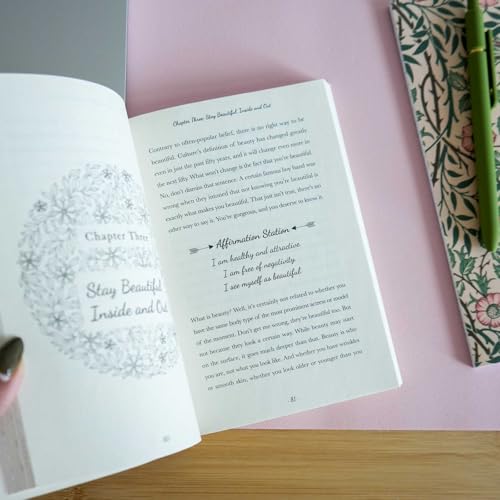 Chapter Three
Stay Beautiful
Inside and Out
Chapter Three: Stay Beautiful Inside and Out
Contrary to often-popular belief, there is no right way to be
beautiful. Culture's definition of beauty has changed greatly
even in just the past fifty years, and it will change even more in
the next fifty. What won't change is the fact that you're beautiful.
No, don't dismiss that sentence. A certain famous boy band was
wrong when they intoned that not knowing you're beautiful is
exactly what makes you beautiful. That just isn't true, there's no
other way to say it. You're gorgeous, and you deserve to know it.
Affirmation Station
I am healthy and attractive.
I am free of negativity.
I see myself as beautiful.
What is beauty? Well, it's certainly not related to whether you
have the same body type of the most prominent screen or model
of the moment. Don't get me wrong, they're beautiful too. But
not because they look a certain way. While beauty may start
on the surface, it goes much deeper than that. Beauty is who
you are, not what you look like. And whether you have wrinkles
or smooth skin, whether you look older or younger than you
81